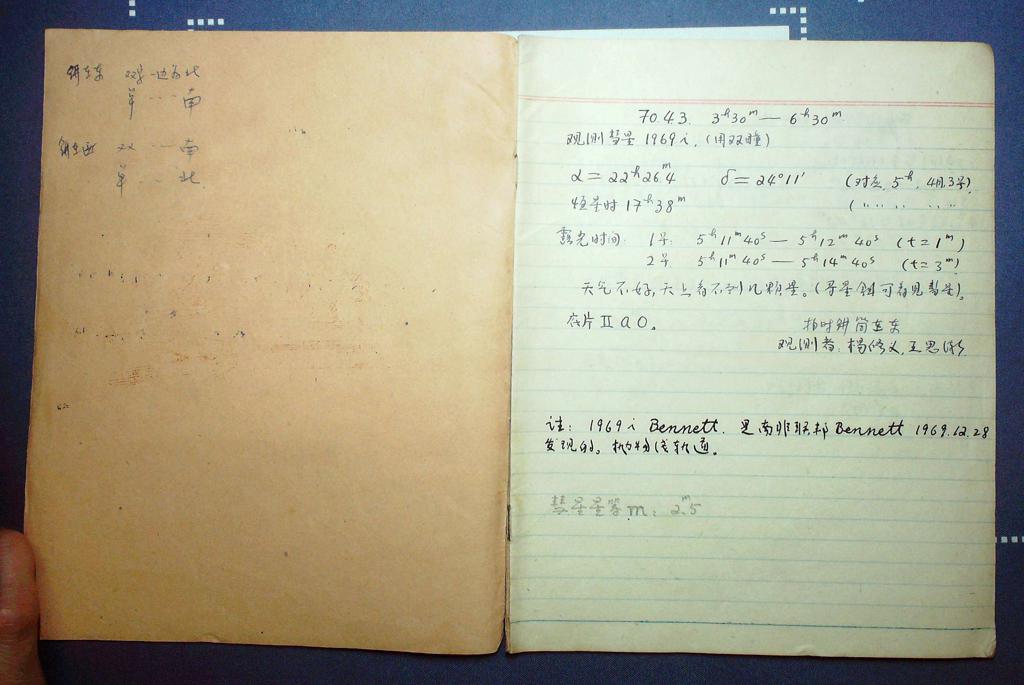 镜在东 双 一边为北
单 .. 南
镜在西 双 .. 南
单 .. 北
70.4.3. 3ʰ30ᵐ — 6ʰ30ᵐ
观测彗星 1969i. (用双瞳)
α = 22ʰ26.ᵐ4 δ = 24°11′ (对应, 5ʰ, 4月3号)
恒星时 17ʰ38ᵐ ( 〃 〃 .. .. 〃
露光时间: 1号. 5ʰ11ᵐ40ˢ — 5ʰ12ᵐ40ˢ (t=1ᵐ)
2号 5ʰ11ᵐ40ˢ — 5ʰ14ᵐ40ˢ (t=3ᵐ)
天气不好,天上看不到几颗星。(寻星镜可看见彗星)。
底片 II a O。 拍时镜筒在东
观测者: 杨修义, 王思潮
注: 1969i Bennett. 是南非联邦 Bennett 1969.12.28
发现的。抛物线轨道。
彗星星等 m: 2.ᵐ5